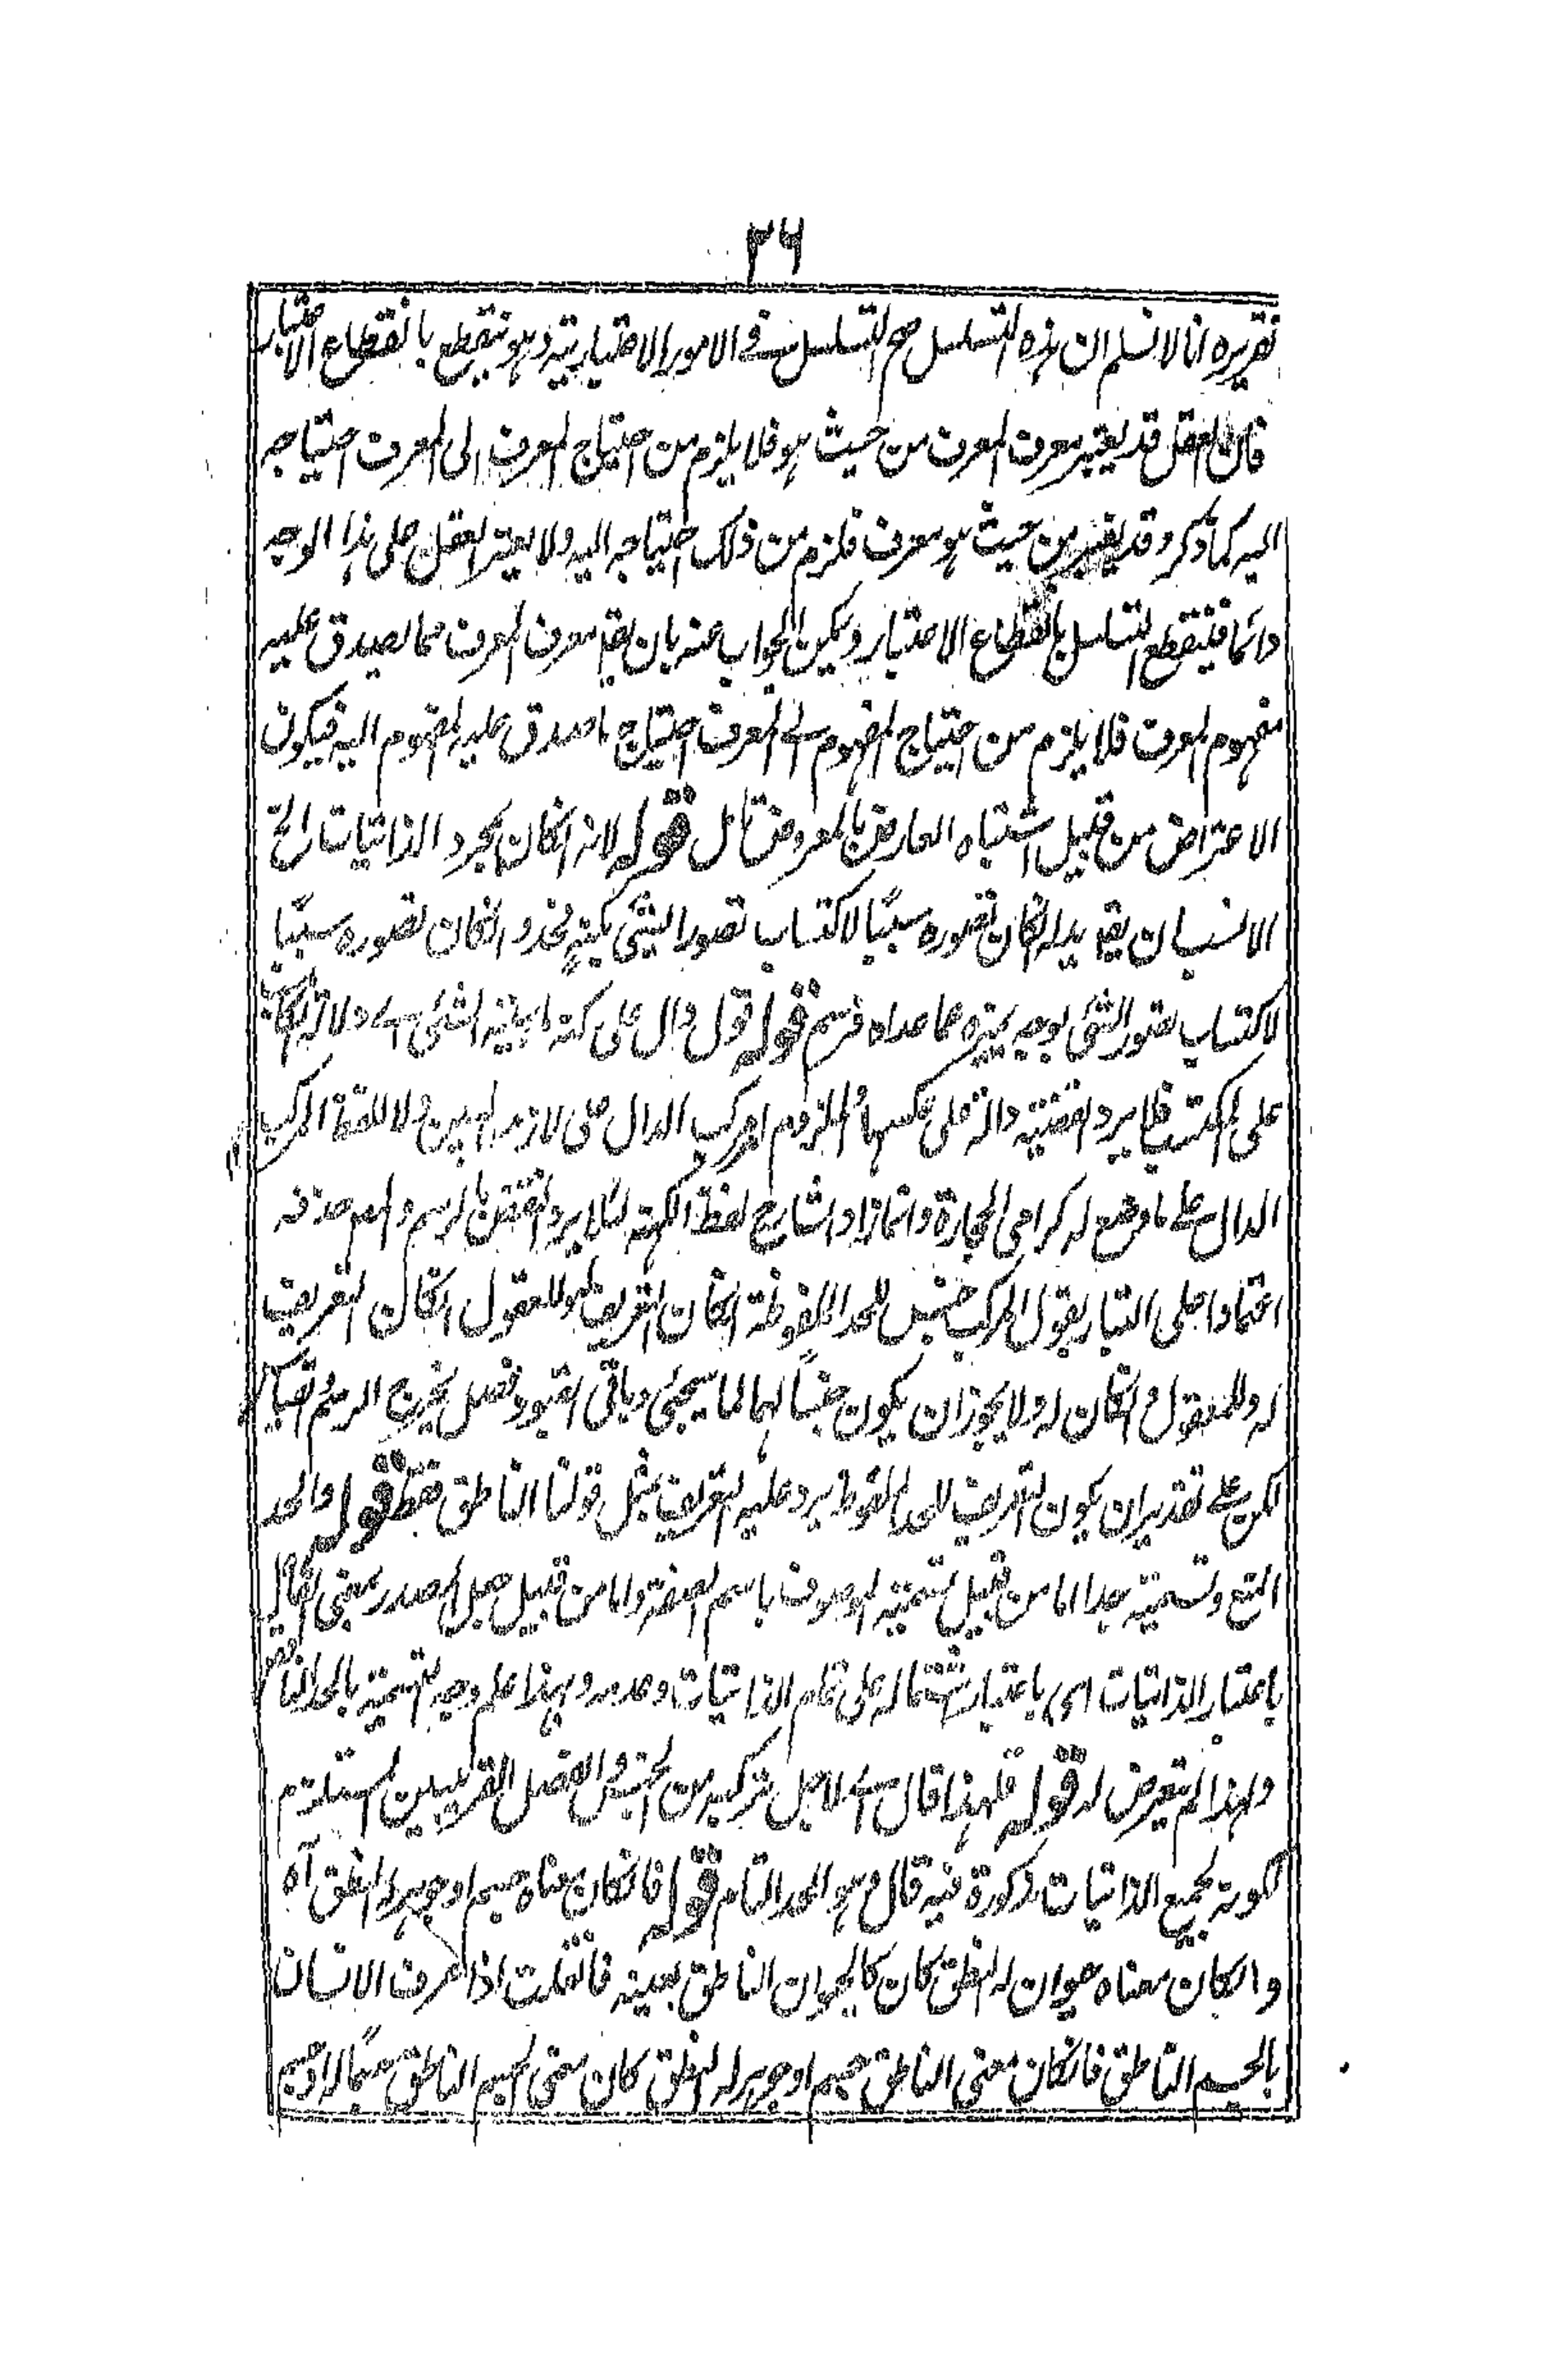 ٣٦
تقريره انا لا نسلم ان هذه التسلسل صح التسلسل في الامور الاعتبارية وهو ينقطع بانقطاع الاعتبار
فان العقل قد يعتبر معرف المعرف من حيث هو فلا يلزم من احتياج المعرف الى المعرف احتياجه
اليه كما ذكر وقد يعتبر من حيث هو معرف فلزم من ذلك احتياجه اليه ولا يعتبر العقل على هذا الوجه
دائما فينقطع التسلسل بانقطاع الاعتبار ويمكن الجواب عنه بان يقم معرف المعرف مما يصدق عليه
مفهوم المعرف فلا يلزم من احتياج المفهوم الى المعرف احتياج ما صدق عليه المفهوم اليه فيكون
الاعتراض من قبيل اشتباه العارض بالمعروض تامل قوله لانه انكان بمجرد الذاتيات الخ
الانسب ان يقم بدله انكان تصوره سببًا لاكتساب تصور الشئ بكنهه فحد وانكان تصوره سببًا
لاكتساب تصور الشئ بوجه يميزه عما عداه فرسم قوله قول دال على كنه ماهية الشئ اے دلالة
على المكتسب فلا يرد القضية دالة على عكسها والملزوم المركب الدال على لازمه البين ولا للفظ المركب
الدال على ما وضع له كرامى الحجارة وانما زاد الشارح لفظ الكنه لئلا يرد النقض بالرسم والمص حذفه
اعتمادا على التبادر بقول المركب جنس للحد الملفوظة انكان التعريف له وللمعقول انكان التعريف
له وللمعقول انكان له ولا يجوز ان يكون جنسًا لهما لما سيجئ وباقى القيود فصل يخرج الرسم
لكن على تقدير ان يكون التعريف للحد الملفوظ يرد عليه التعريف بمثل قولنا الناطق فقط قوله والحد
المنع وتسميته بحد اما من قبيل تسمية الموصوف باسم الصفة واما من قبيل جعل المصدر بمعنى الفاعل
باعتبار الذاتيات اى باعتبار اشتماله على تمام الذاتيات وعدمه وبهذا علم وجه التسمية بالحد الناقص
ولهذا لم يتعرض له قوله فلهذا قال اے لاجل تركبه من الجنس والفصل القريبين المستلزم
لكونه لجميع الذاتيات مذكورة فيه قال وهو الحد التام قوله فانكان معناه جسم او جوهر له النطق آه
وانكان معناه حيوان له النطق كان كالحيوان الناطق بعينه فان قلت اذا عرف الانسان
بالجسم الناطق فانكان معنى الناطق جسم او جوهر له النطق كان معنى الجسم الناطق جسمًا له